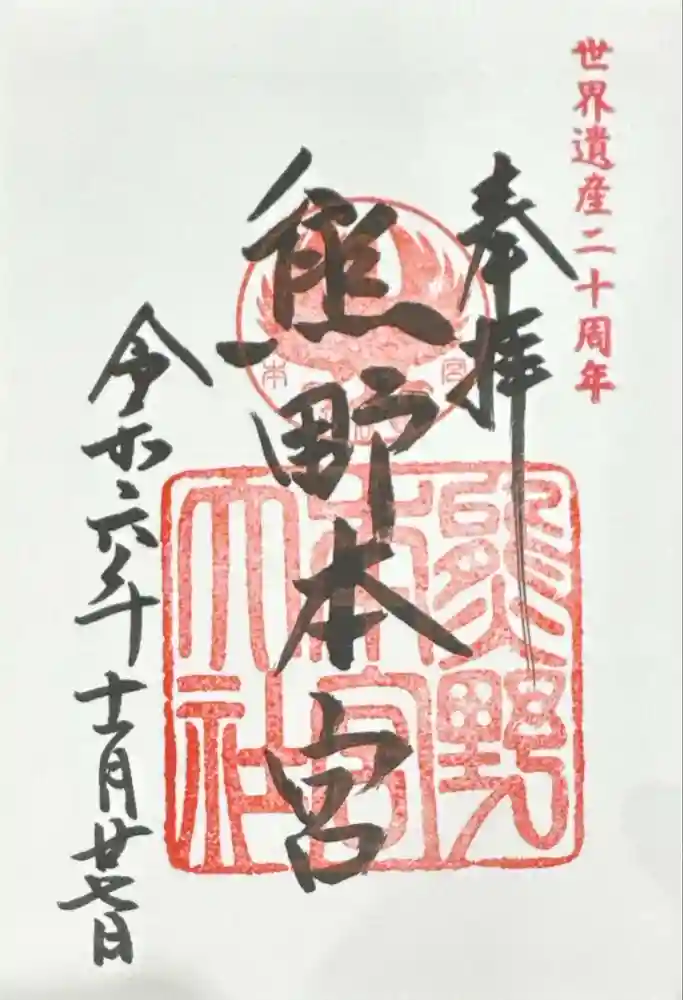 世界遺産二十周年
奉拝
熊野本宮
令和六年十二月廿七日
熊野
本宮
大社